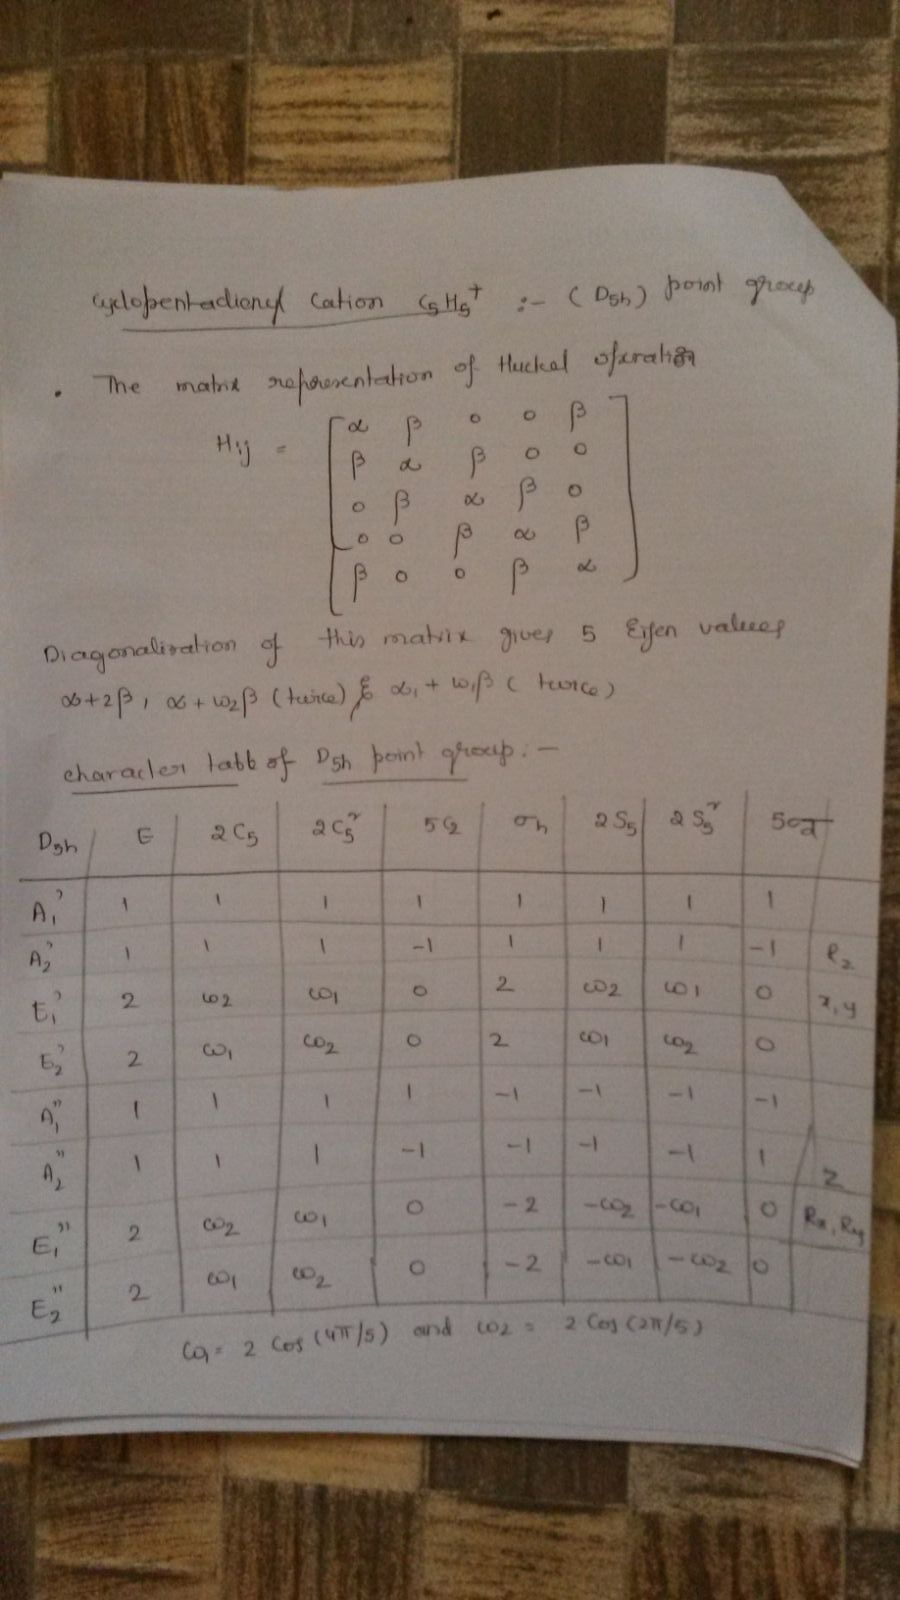 Cyclopentadienyl Cation C5H5+ :- (D5h) point group
• The matrix representation of Huckel operation
Hij = [ α β 0 0 β
β α β 0 0
0 β α β 0
0 0 β α β
β 0 0 β α ]
Diagonalization of this matrix gives 5 Eigen values
α+2β, α+ω2β (twice) & α1+ω1β (twice)
character table of D5h point group:-
D5h E 2C5 2C5² 5C2 σh 2S5 2S5² 5σd
A1' 1 1 1 1 1 1 1 1
A2' 1 1 1 -1 1 1 1 -1 Rz
E1' 2 ω2 ω1 0 2 ω2 ω1 0 x,y
E2' 2 ω1 ω2 0 2 ω1 ω2 0
A1" 1 1 1 1 -1 -1 -1 -1
A2" 1 1 1 -1 -1 -1 -1 1 z
E1" 2 ω2 ω1 0 -2 -ω2 -ω1 0 Rx, Ry
E2" 2 ω1 ω2 0 -2 -ω1 -ω2 0
ω1= 2 Cos (4π/5) and ω2 = 2 Cos (2π/5)